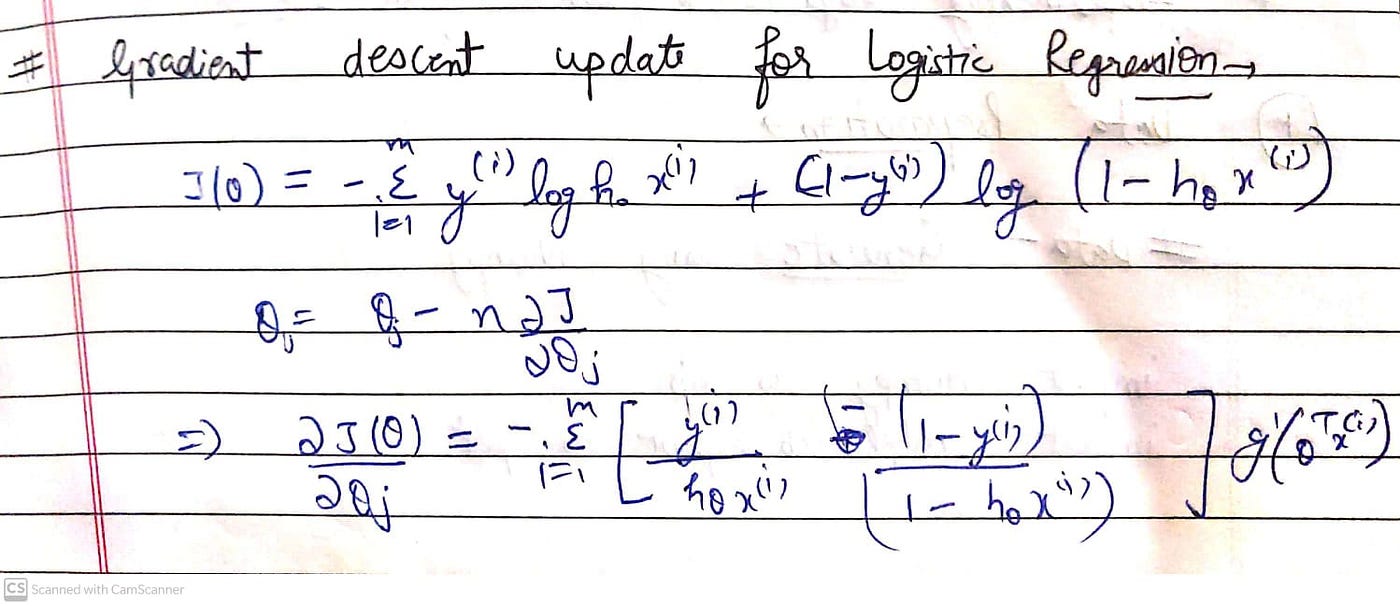 # Gradient descent update for Logistic Regression →
J(θ) = - Σ_{i=1}^{m} y^{(i)} log h_θ x^{(i)} + (1-y^{(i)}) log (1 - h_θ x^{(i)})
θ_j = θ_j - η ∂J/∂θ_j
⇒ ∂J(θ)/∂θ_j = - Σ_{i=1}^{m} [ y^{(i)}/h_θ x^{(i)} - (1 - y^{(i)})/(1 - h_θ x^{(i)}) ] g'(θ^T x^{(i)})
CS Scanned with CamScanner